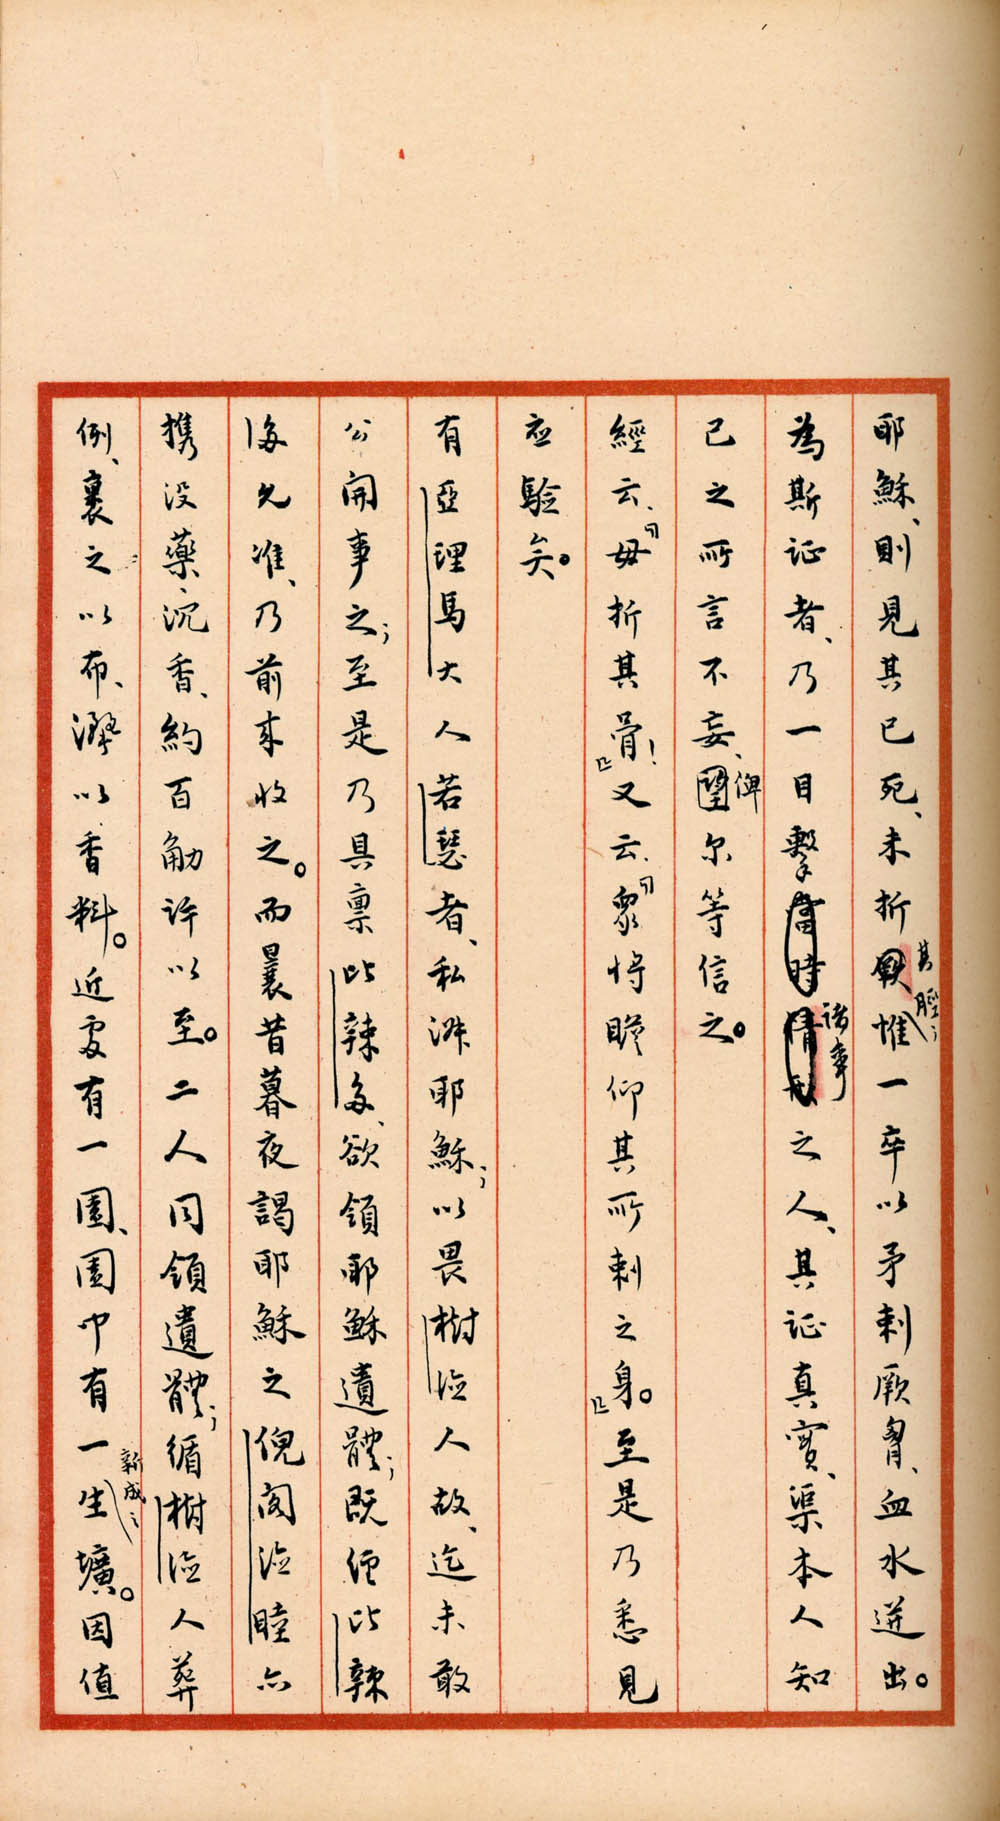 耶穌、則見其已死、未折其脛；惟一卒以矛刺厥胷、血水迸出。
為斯証者、乃一目擊當時情形諸事之人、其証真實、渠本人知
己之所言不妄、望俾尔等信之。
經云、「毋折其骨！」又云、「眾將瞻仰其所刺之身。」至是乃悉見
应驗矣。
有亞理馬大人若瑟者、私淑耶穌；以畏樹德人故、迄未敢
公開事之；至是乃具禀比辣多、欲領耶穌遺體；既經比辣
多允准、乃前来收之。而曩昔暮夜謁耶穌之倪閣德睦亦
携没藥、沉香、約百觔許以至。二人同領遺體；循樹德人葬
例、裹之以布、以香料。近處有一園、園中有一新成之生壙。因值